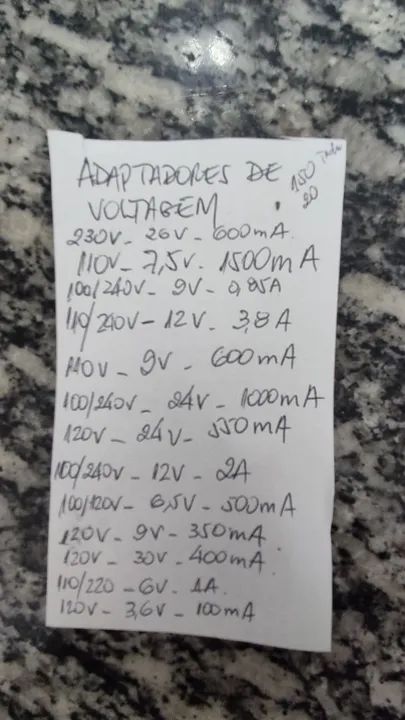 ADAPTADORES DE
VOLTAGEM
150 Tudo
20
230V - 26V - 600mA.
110V - 7,5V. 1500mA
100/240V - 9V - 0,85A
110/240V - 12V. 3,8A
110V - 9V - 600mA
100/240V - 24V - 1000mA
120V - 24V - 550mA
100/240V - 12V - 2A
100/120V - 6,5V - 500mA
120V - 9V - 350mA
120V - 30V - 400mA.
110/220 - 6V - 1A.
120V - 3,6V - 100mA